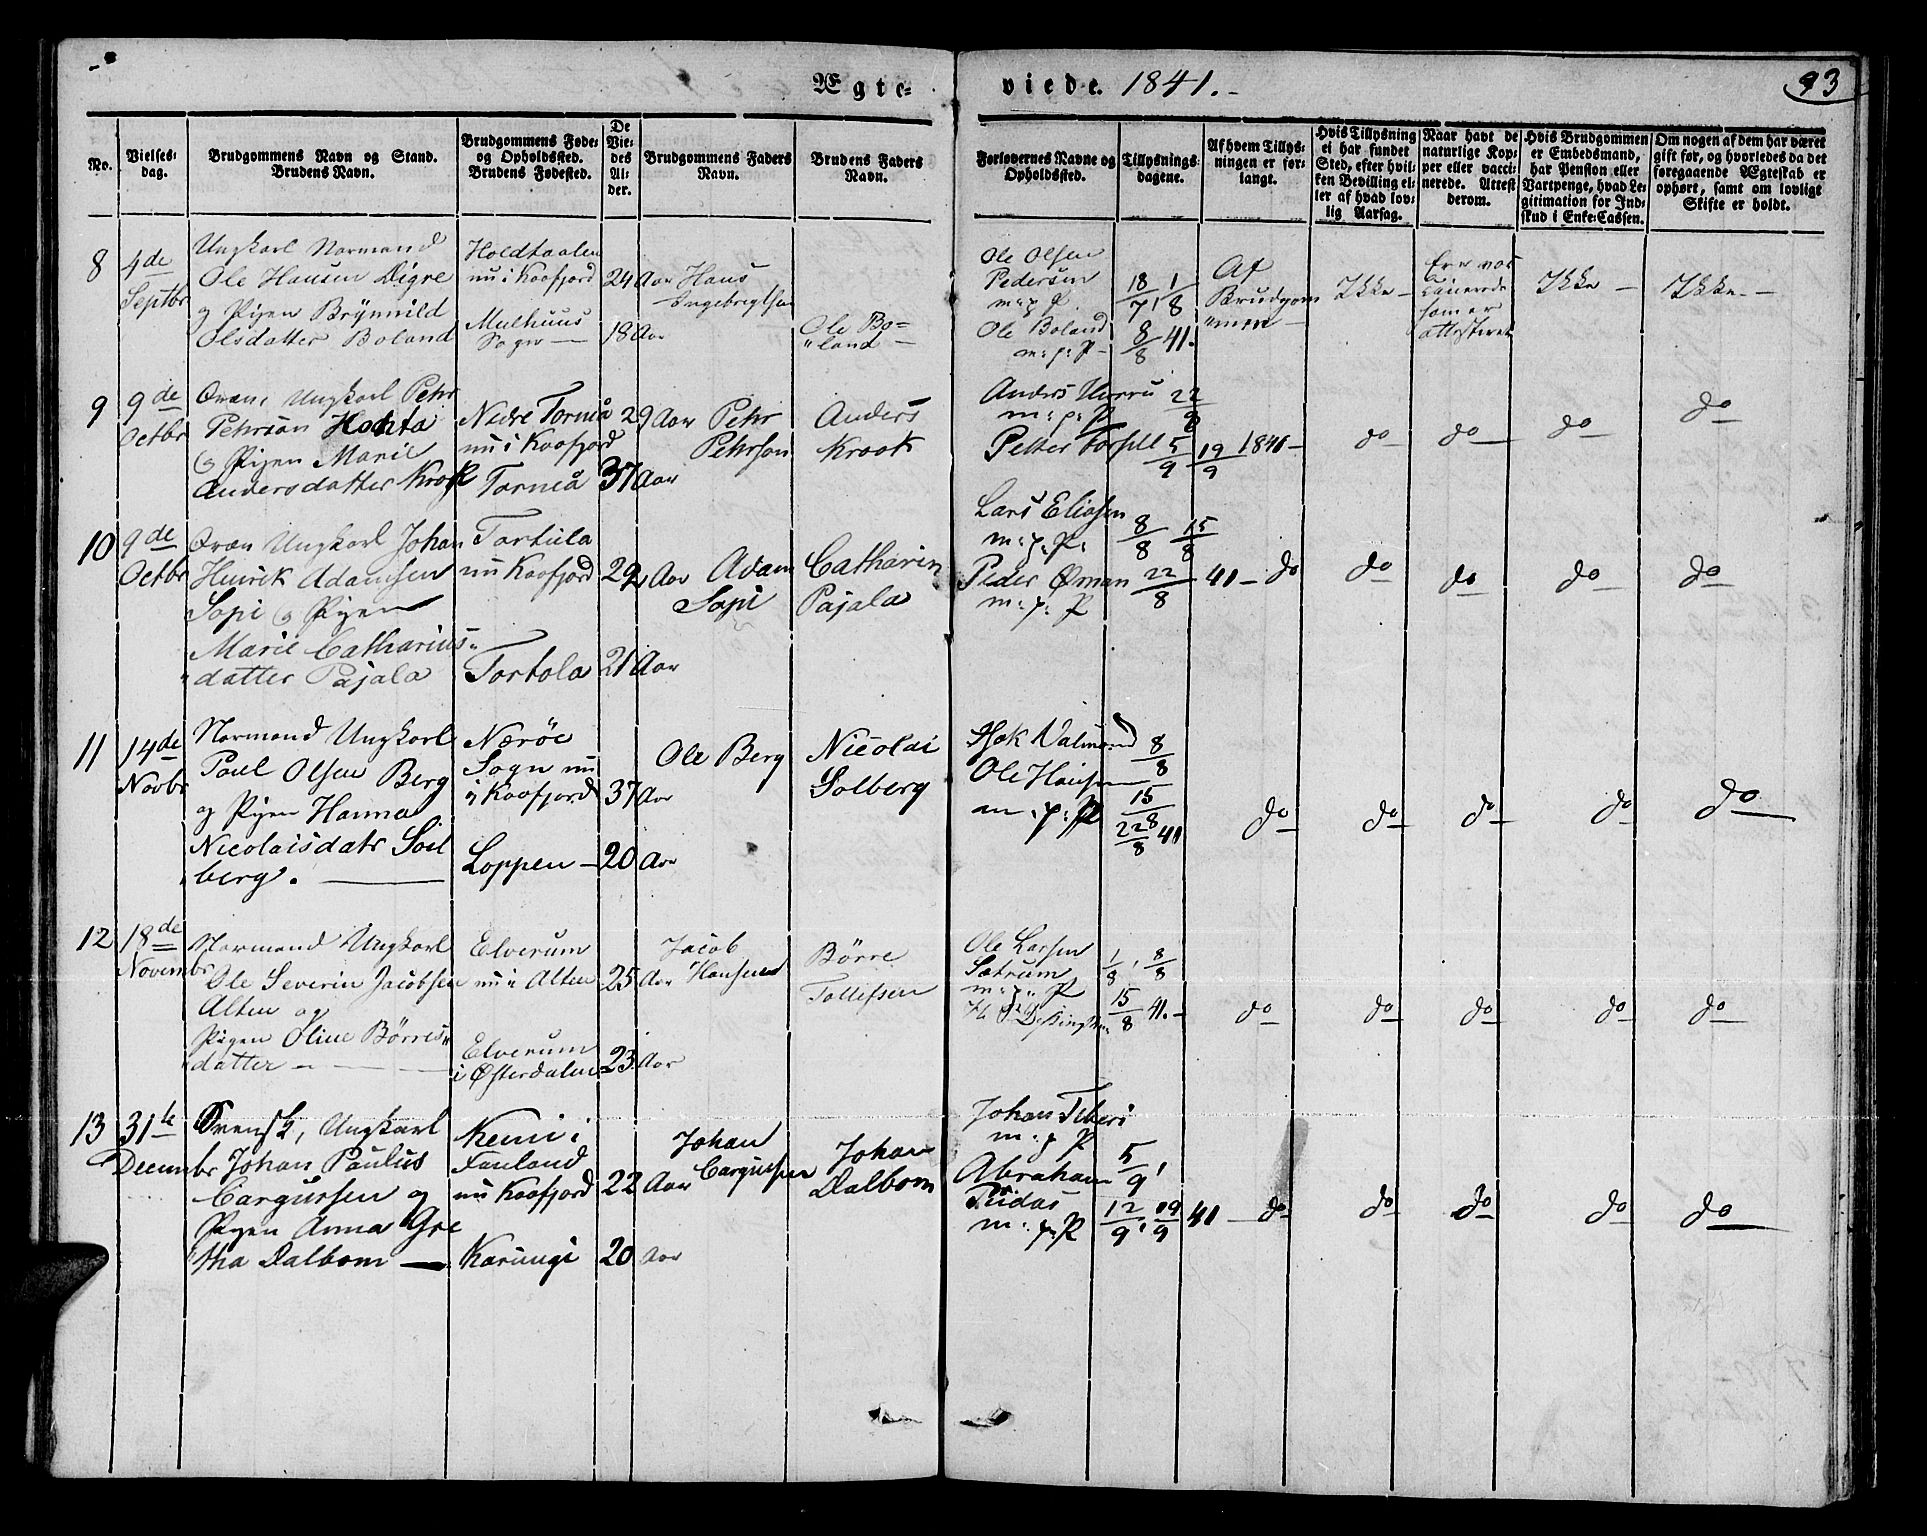 Ægte-
viede. 1841.-
93
No.
Vielses-
dag.
Brudgommens Navn og Stand.
Brudens Navn.
Brudgommens Føde-
og Opholdssted.
Brudens Fødested.
De
Vie-
des
Al-
der.
Brudgommens Faders
Navn.
Brudens Faders
Navn.
Forlovernes Navne og
Opholdssted.
Tillysnings-
dagene.
Af hvem Tillys-
ningen er for-
langt.
Hvis Tillysning
ei har fundet
Sted, efter hvil-
ken Bevilling el-
ler af hvad lov-
lig Aarsag.
Naar havt de
naturlige Kop-
per eller vacci-
nerede. Attest
derom.
Hvis Brudgommen
er Embedsmand,
har Pension eller
Vartpenge, hvad Le-
gitimation for Ind-
skud i Enke-Cassen.
Om nogen af dem har været
gift før, og hvorledes da det
foregaaende Ægteskab er
ophørt, samt om lovligt
Skifte er holdt.
8
4de
Septbr
Ungkarl Normand
Ole Hansen Digre
og Pigen Brynnild
Olsdatter Boland
Holdtaalen
nu i Kaafjord
Melhuus
Sogn —
24 Aar
18 Aar
Hans
Ingebrigtsen
Ole Bo-
"land —
Ole Olsen
Pedersen
m: p P
Ole Boland
m: p: P -
18/7, 1/8
8/8 41.
Af
Brudgom
"men —
Ikke —
Er vac
cinerede
som er
attesteret
Ikke —
Ikke. —
9
9de
Octbr
Qvæn, Ungkarl Pehr
Pehrson Hochta
og Pigen Marie
Andersdatter Krok
Nedre Torneå
nu i Kaafjord
Torneå
29 Aar
37 Aar
Pehr
Pehrson
Anders
Krook
Anders
m: p: P
Petter Forsell
22/8
5/9 19/9 1841 —
do
do
do
do
10
9de
Octbr
Qvæn Ungkarl Johan
Henrik Adamsen
Sapi og Pigen
Marie Catharins"
"datter Pajala
Tortula
nu Kaafjord
Tortola
29 Aar
21 Aar
Adam
Sapi
Catharin
Pajala
Lars Eliasen
m: p: P:
Peder Öman
m: p: P
8/8 15/8
22/8 41 —
do
do
do
do
do
11
14de
Novbr
Normand Ungkarl
Paul Olsen Berg
og Pigen Hanna
Nicolaisdatr Sol
berg. —
Nærøe
Sogn nu
i Kaafjord
Loppen —
37 Aar
20 Aar
Ole Berg
Nicolai
Solberg
Isak Valmond
Ole Hansen
m: p: P
8/8
15/8
22/8 41
do
do
do
do
do
12
18de
Novembr
Normand Ungkarl
Ole Severin Jacobsen
Alten og
Pigen Oline Börres"
"datter —
Elverum
nu i Alten
Elverum
i Østerdalen
25 Aar
23 Aar
Jacob
Hansen
Börre
Tollefsen
Ole Larsen
Sætrum
m: p: P
1/8, 8/8
15/8 41. —
do
do
do
do
do
13
31te
Decembr
Svensk, Ungkarl
Johan Paulus
Cargussen og
Pigen Anna Gre
"tha Dalbom —
Kemi i
Finland
nu Kaafjord
Karungi
22 Aar
20 Aar
Johan
Cargussen
Johan
Dalbom
Johan
m: p P
Abraham
m: p: P
5/9,
12/9, 19/9 41 —
do
do
do
do
do